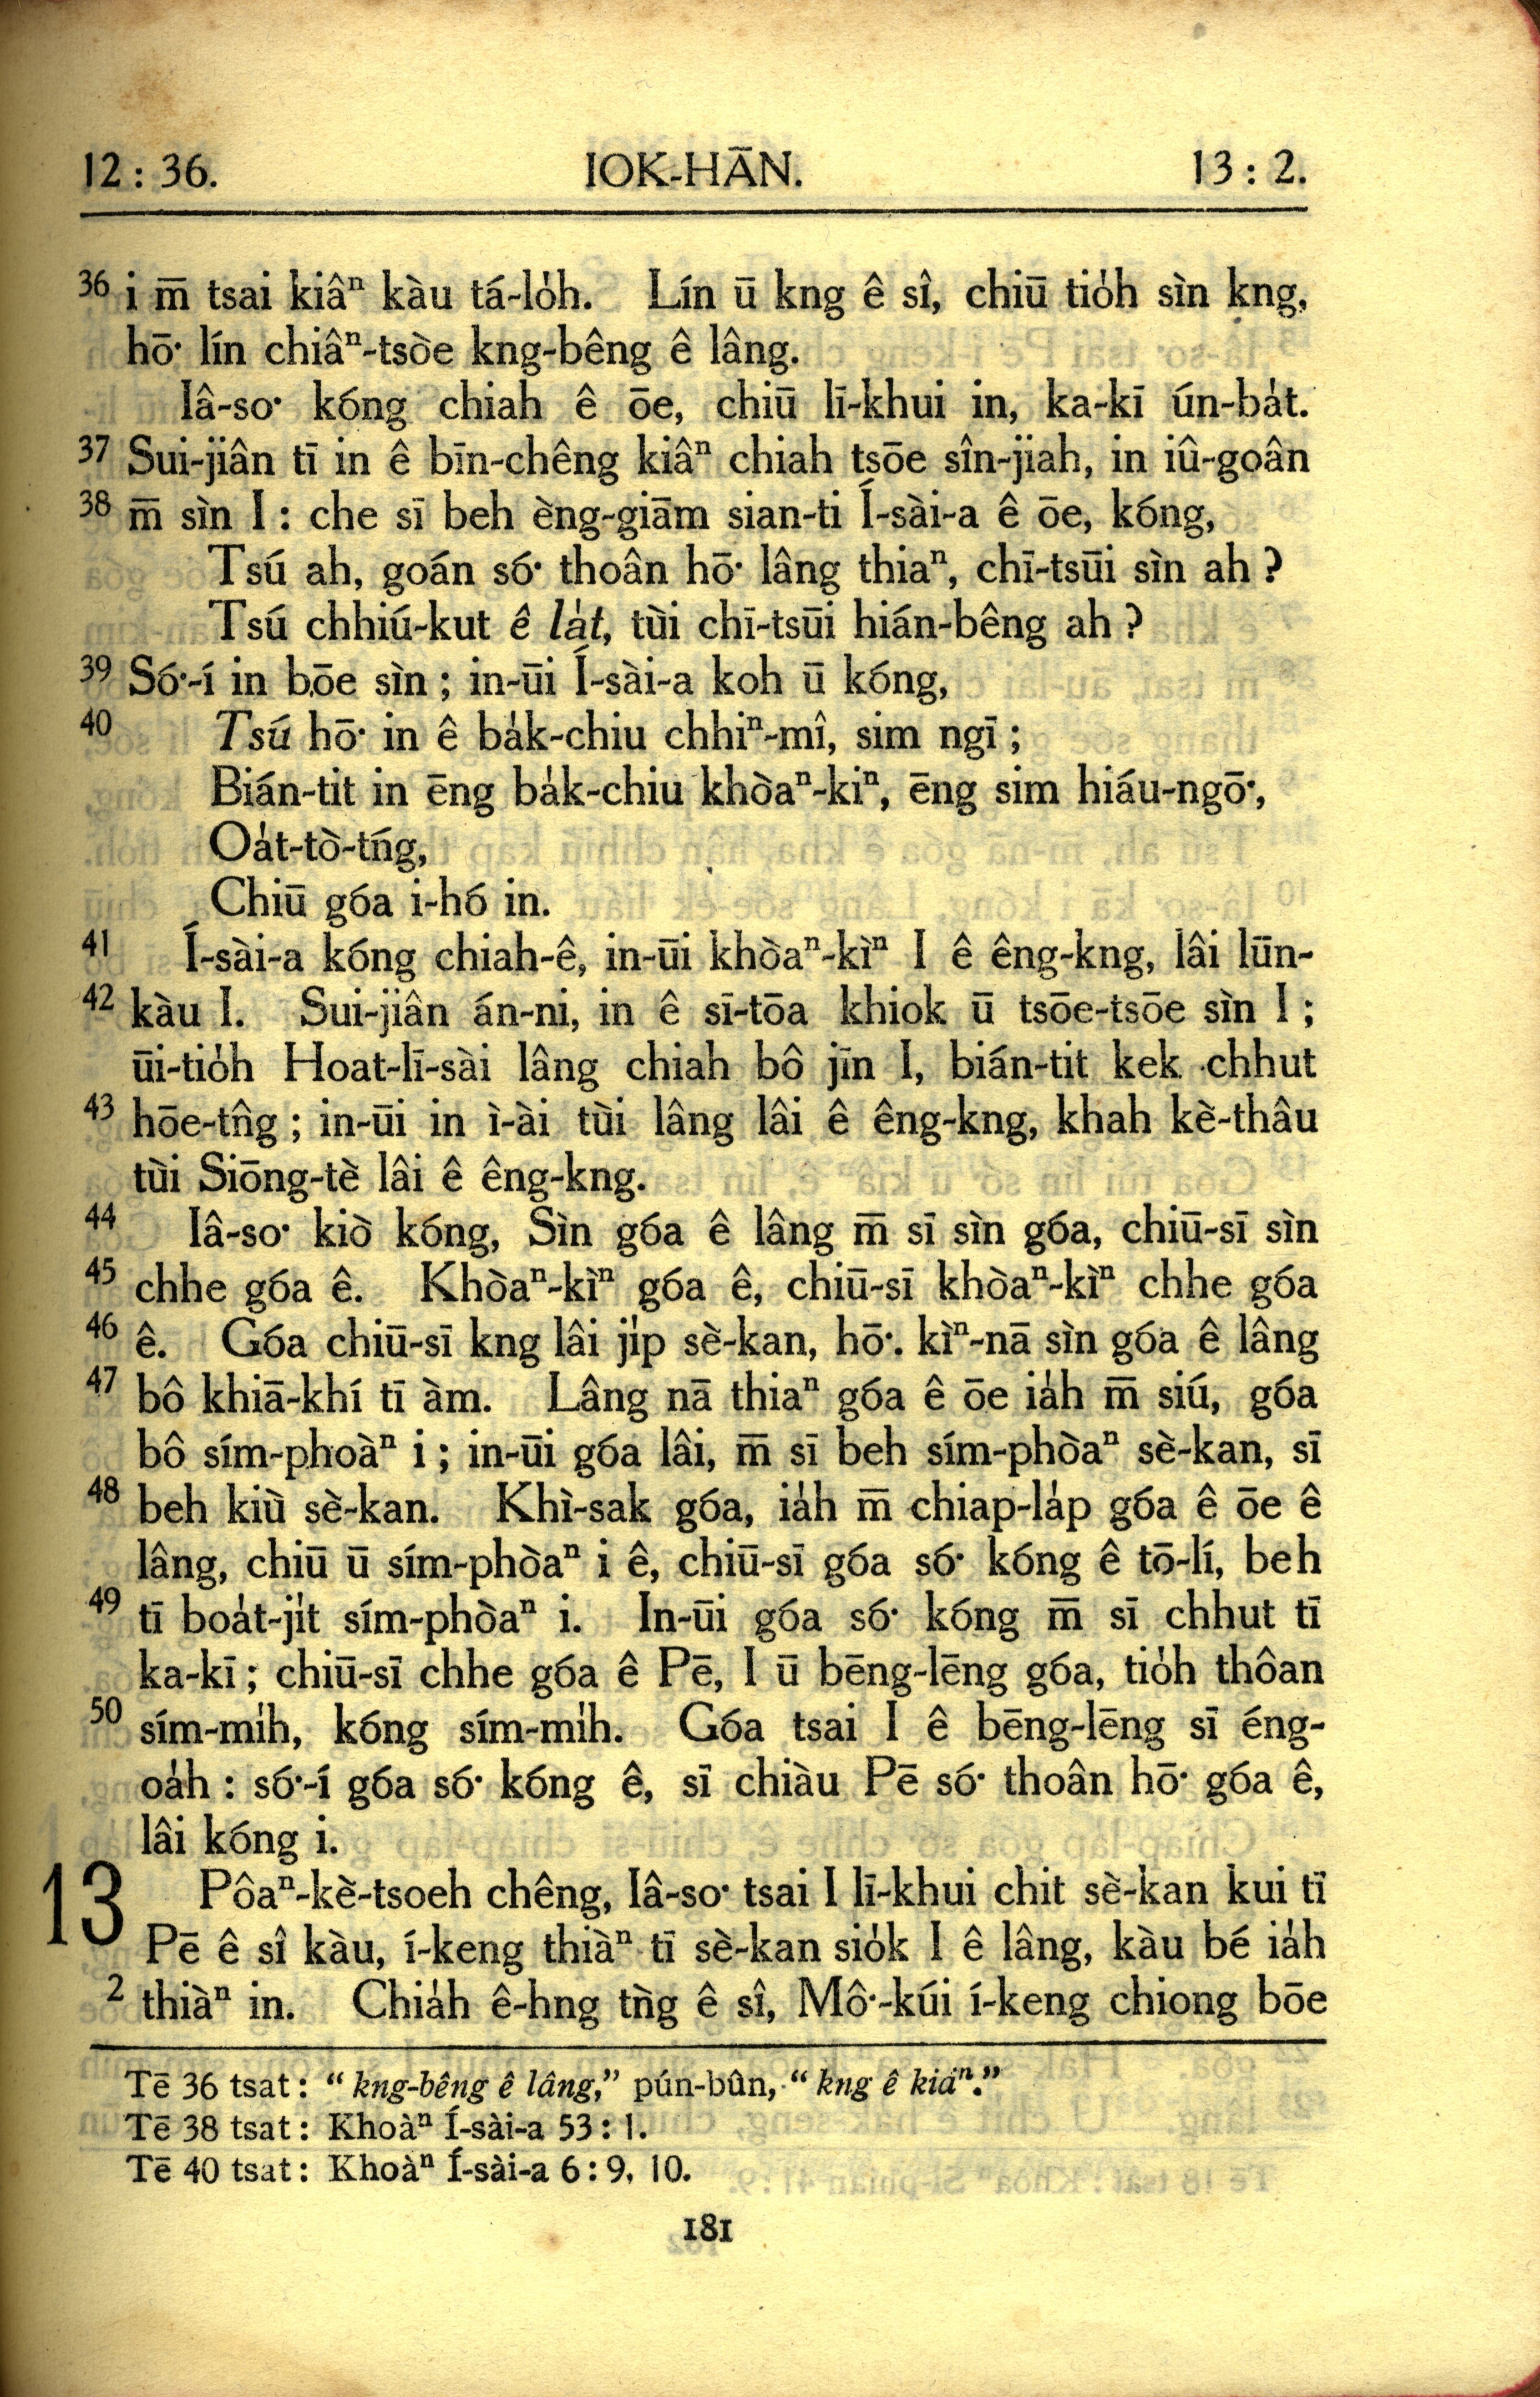 12 : 36. IOK-HĀN. 13 : 2.
36 i m̄ tsai kiâⁿ kàu tá-lo̍h. Lín ū kng ê sî, chiū tio̍h sìn kng,
hō͘ lín chiâⁿ-tsòe kng-bêng ê lâng.
Iâ-so͘ kóng chiah ê ōe, chiū lī-khui in, ka-kī ún-ba̍t.
37 Sui-jiân tī in ê bīn-chêng kiâⁿ chiah tsōe sîn-jiah, in iû-goân
38 m̄ sìn I : che sī beh èng-giām sian-ti Í-sài-a ê ōe, kóng,
Tsú ah, goán só͘ thoân hō͘ lâng thiaⁿ, chī-tsūi sìn ah ?
Tsú chhiú-kut ê la̍t, tùi chī-tsūi hián-bêng ah ?
39 Só͘-í in bōe sìn ; in-ūi Í-sài-a koh ū kóng,
40 Tsú hō͘ in ê ba̍k-chiu chhiⁿ-mî, sim ngī ;
Bián-tit in ēng ba̍k-chiu khòaⁿ-kiⁿ, ēng sim hiáu-ngō͘,
Oa̍t-tò-tńg,
Chiū góa i-hó in.
41 Í-sài-a kóng chiah-ê, in-ūi khòaⁿ-kìⁿ I ê êng-kng, lâi lūn-
42 kàu I. Sui-jiân án-ni, in ê sī-tōa khiok ū tsōe-tsōe sìn I ;
ūi-tio̍h Hoat-lī-sài lâng chiah bô jīn I, bián-tit kek chhut
43 hōe-tn̂g ; in-ūi in ì-ài tùi lâng lâi ê êng-kng, khah kè-thâu
tùi Siōng-tè lâi ê êng-kng.
44 Iâ-so͘ kiò kóng, Sìn góa ê lâng m̄ sī sìn góa, chiū-sī sìn
45 chhe góa ê. Khòaⁿ-kìⁿ góa ê, chiū-sī khòaⁿ-kìⁿ chhe góa
46 ê. Góa chiū-sī kng lâi ji̍p sè-kan, hō͘. kìⁿ-nā sìn góa ê lâng
47 bô khiā-khí tī àm. Lâng nā thiaⁿ góa ê ōe ia̍h m̄ siú, góa
bô sím-phoàⁿ i ; in-ūi góa lâi, m̄ sī beh sím-phòaⁿ sè-kan, sī
48 beh kiù sè-kan. Khì-sak góa, ia̍h m̄ chiap-la̍p góa ê ōe ê
lâng, chiū ū sím-phòaⁿ i ê, chiū-sī góa só͘ kóng ê tō-lí, beh
49 tī boa̍t-ji̍t sím-phòaⁿ i. In-ūi góa só͘ kóng m̄ sī chhut tī
ka-kī ; chiū-sī chhe góa ê Pē, I ū bēng-lēng góa, tio̍h thôan
50 sím-mi̍h, kóng sím-mi̍h. Góa tsai I ê bēng-lēng sī éng-
oa̍h : só͘-í góa só͘ kóng ê, sī chiàu Pē só͘ thoân hō͘ góa ê,
lâi kóng i.
13 Pôaⁿ-kè-tsoeh chêng, Iâ-so͘ tsai I lī-khui chit sè-kan kui tī
Pē ê sî kàu, í-keng thiàⁿ tī sè-kan sio̍k I ê lâng, kàu bé ia̍h
2 thiàⁿ in. Chia̍h ê-hng tǹg ê sî, Mô͘-kúi í-keng chiong bōe
Tē 36 tsat : “ kng-bêng ê lâng,” pún-bûn, “ kng ê kiáⁿ.”
Tē 38 tsat : Khoàⁿ Í-sài-a 53 : 1.
Tē 40 tsat : Khoàⁿ Í-sài-a 6 : 9, 10.
181